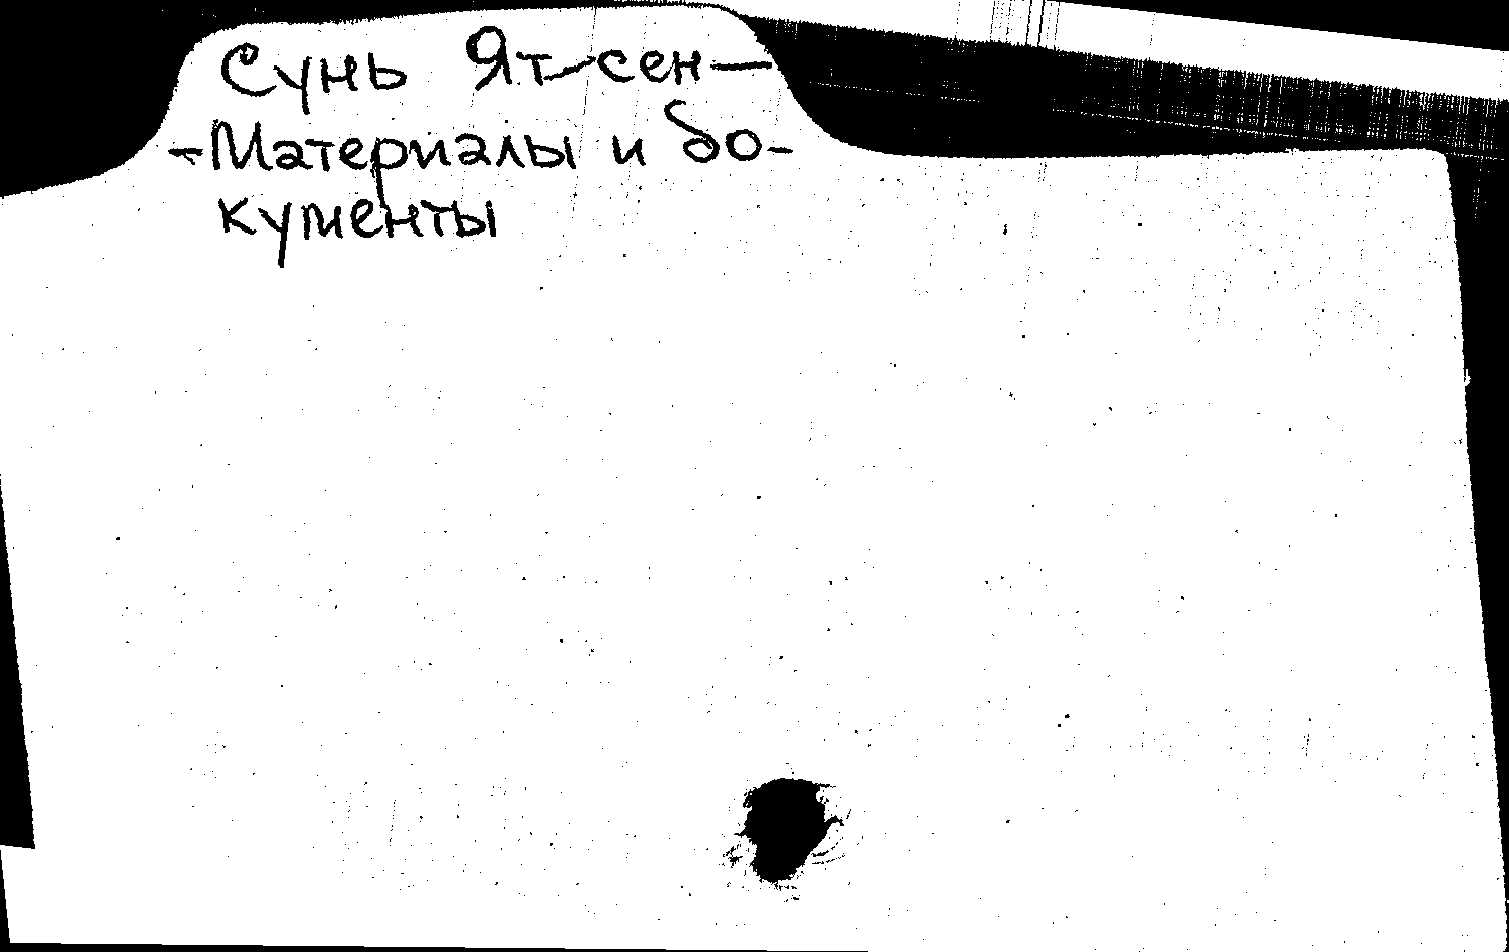 Сунь Ят-сен—
-Материалы и до-
кументы